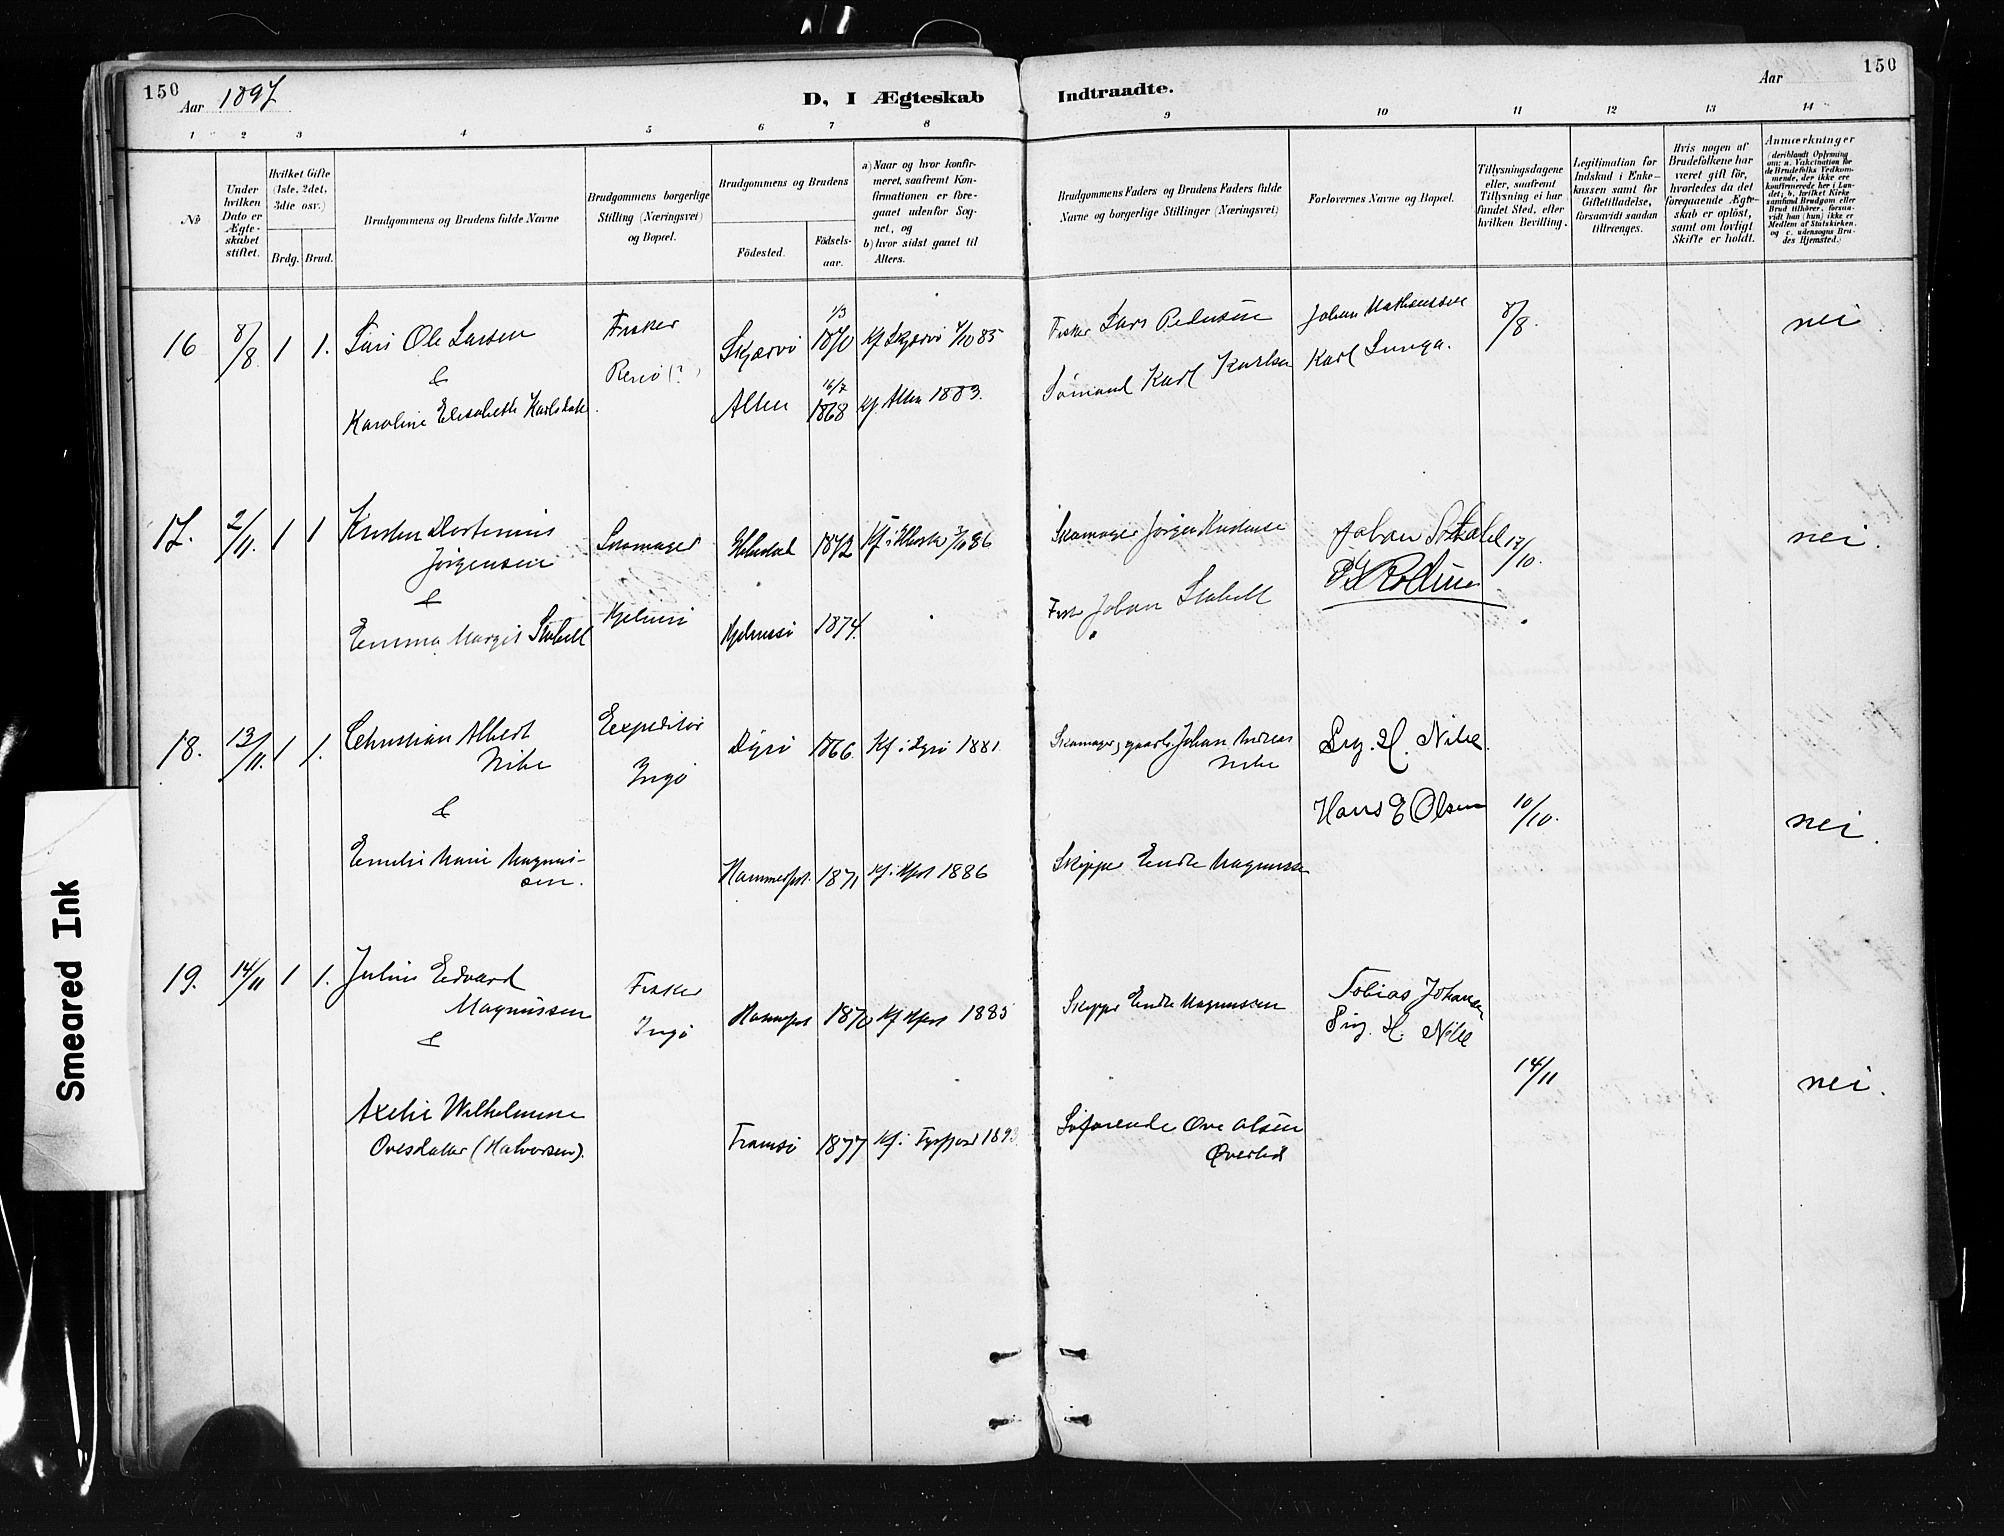 150
Aar 1897
D, I Ægteskab Indtraadte.
Aar
150
1 2 3 4 5 6 7 8 9 10 11 12 13 14
No
Under hvilken Dato er Ægteskabet stiftet.
Hvilket Gifte (1ste, 2det, 3die osv.)
Brdg. Brud.
Brudgommens og Brudens fulde Navne
Brudgommens borgerlige Stilling (Næringsvei) og Bopæl.
Brudgommens og Brudens
Fødested.
Fødsels-aar.
a) Naar og hvor konfirmeret, saafremt Konfirmationen er foregaaet udenfor Sognet, og
b) hvor sidst gaaet til Alters.
Brudgommens Faders og Brudens Faders fulde Navne og borgerlige Stillinger (Næringsvei)
Forlovernes Navne og Bopæl.
Tillysningsdagene eller, saafremt Tillysning ei har fundet Sted, efter hvilken Bevilling.
Legitimation for Indskud i Enkekassen samt for Giftetilladelse, forsaavidt saadan tiltrænges.
Hvis nogen af Brudefolkene har været gift før, hvorledes da det foregaaende Ægteskab er opløst, samt om lovligt Skifte er holdt.
Anmærkninger
(deriblandt Oplysning om: a. Vakcination for de Brudefolks Vedkommende, der ikke ere konfirmerede her i Landet; b. hvilket Kirkesamfund Brudgom eller Brud tilhører, forsaavidt han (hun) ikke er Medlem af Statskirken, og c. udensogns Brudes Hjemsted.)
16 8/8 1 1. Ole Larsen
&
Karoline Elisabeth
Fisker
Skjærvö 1/3 1870 Kf Skjærvö 85
Alten 16/7 1868 Kf. Alten 1883.
Fisker Lars Pedersen
Sömand Karl Karlsen
Johan Mathiassen
Karl Lunga.
8/8.
nei
17. 2/11. 1 1
Jørgensen
&
Emma Margit Stabell
Skomager
1872
1874.
Skomager Jørgen
Johan Stabell
Johan Stabell
17/10.
nei.
18. 13/11. 1 1. Christian Albert
Nibe
&
Emelie Marie Magnus-
sen.
Expeditör
Ingö
Dyrö 1866. Kf. i Dyrö 1881.
Hammerfest. 1871 Kf. Hfest 1886
Johan Andreas
Nibe
Skipper Endre Magnussen
Sig. H. Nibe.
Hans E Olsen
10/10.
nei.
19. 14/11 1 1. Julius Edvard
Magnüssen
&
Axelie Wilhelmine
Ovesdatter (Halvorsen).
Fisker
Ingö
1870 Kf Hfest 1885
Tromsö 1877 Kf. i
Skipper Endre Magnussen
Søfarende Ove Olsen
Tobias Johansen
Sig. H. Nibe
14/11
nei.
Smeared Ink